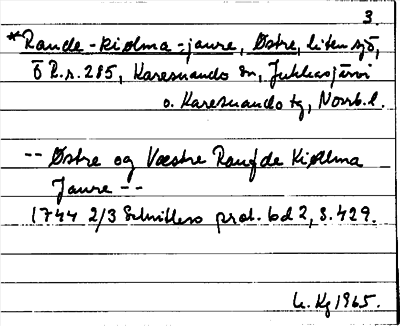 3.
*Raude-kiølma-jaure, Østre, liten sjö,
Ö R.r. 285, Karesuando sn, Jukkasjärvi
o. Karesuando tg, Norrb.l.
-- Østre og Væstre Raufde Kiøllma
Jaure --
1744 2/3 Schnitlers prot. bd 2, S. 429.
Kg 1965.